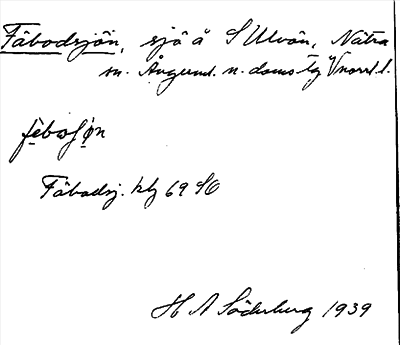 Fäbodsjön, sjö å S Ulvön, Nätra
sn. Ångerml. n. doms tg Vnorrl. l.
Fäbodsj. kbl 69 SO
H A Söderberg 1939